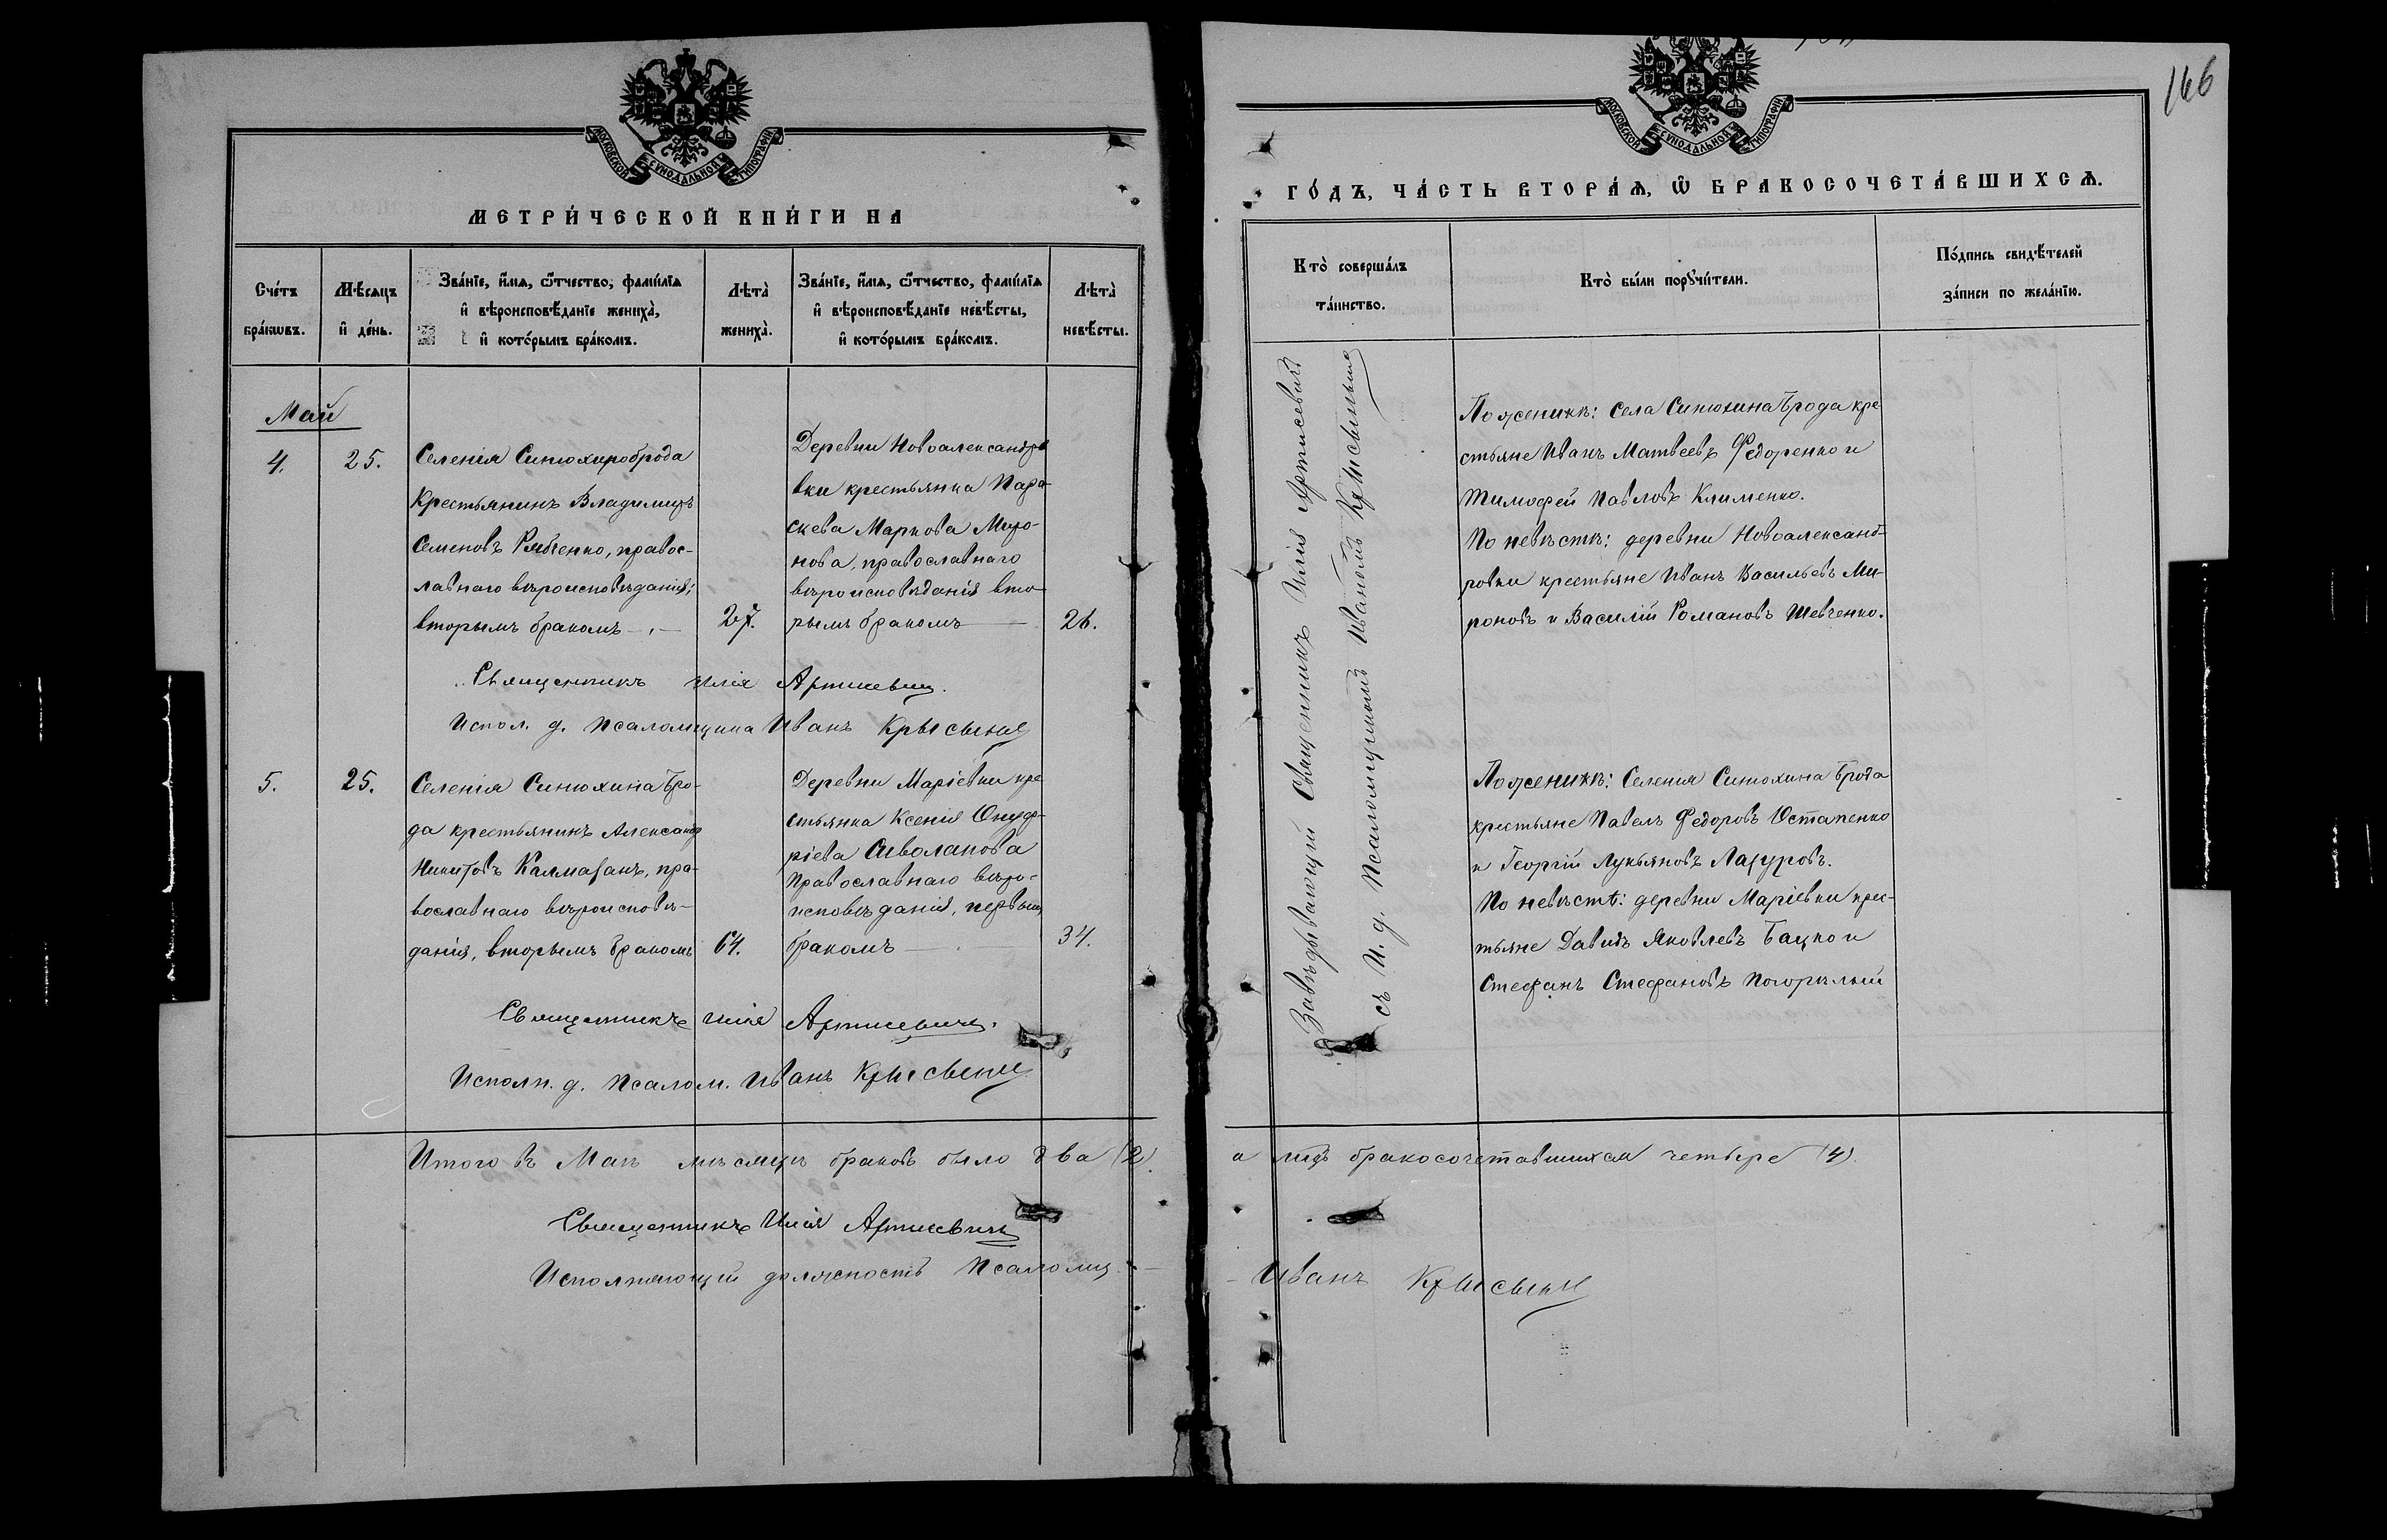 МОСКОВСКОЙ СѴНОДАЛЬНОЙ ТИПОГРАФІИ
МЕТРИ́ЧЕСКОЙ КНИ́ГИ НА
Сче́тъ бра́кωвъ.
Мѣсяцъ и҆ де́нь.
Зва́нїе, и҆́мя, ѻ҆́тчество, фами́лїя и҆ вѣроисповѣ́данїе жениха̀, и҆ кото́рымъ бра́комъ.
Лѣта̀ жениха̀.
Зва́нїе, и҆́мя, ѻ҆́тчество, фами́лїя и҆ вѣроисповѣ́данїе невѣ́сты, и҆ кото́рымъ бра́комъ.
Лѣта̀ невѣ́сты.
Май
4.
25.
Селенія Синюхиноброда
Крестьянинъ Владимиръ
Семеновъ Рябченко, правос-
лавнаго вѣроисповѣданія;
вторымъ бракомъ
27.
Деревни Новоалександро
вки крестьянка Пара-
скева Маркова Миро-
нова, православнаго
вѣроисповѣданія вто-
рымъ бракомъ
26.
Священникъ Илія Артисевич.
Испол. д. Псаломщика Иванъ
5.
25.
Селенія Синюхина Бро-
да крестьянинъ Александр
Никитовъ Калмазанъ, пра-
вославнаго вѣроисповѣ-
данія, вторымъ бракомъ
64.
Деревни Маріевки кре
стьянка Ксенія Онуф-
ріева Сиволапова
Православнаго вѣро-
исповѣданія, первым
бракомъ
34.
Священникъ Илія Артисевичъ.
Исполн. д. Псалом. Иванъ
Итого въ Маѣ мѣсяцѣ браковъ было два (2).
Священникъ Илія Артисевичъ
Исполняющій должность Псаломщ.
166
МОСКОВСКОЙ СѴНОДАЛЬНОЙ ТИПОГРАФІИ
ГО́ДЪ, ЧА́СТЬ ВТОРА́Ѧ, Ѡ҆ БРАКОСОЧЕТА́ВШИХСѦ.
Кто̀ соверша́лъ та́инство.
Кто̀ бы́ли порꙋчи́тели.
По́дпись свидѣ́телей за́писи по жела́нїю.
Завѣдывающій Священникъ Илія Артисевичъ
съ И. д. Псаломщикомъ Иваномъ
По женихѣ: села Синюхина Брода кре
стьяне Иванъ Матвѣевъ Федоренко и
Тимофей Павловъ Клименко.
По невѣстѣ: деревни Новоалександ-
ровки крестьяне Иванъ Васильевъ Ми-
роновъ и Василій Романовъ Шевченко.
По женихѣ: Селенія Синюхина Брода
крестьяне Павелъ Федоровъ Остапенко
и Георгій Лукьяновъ Лазуровъ.
По невѣстѣ: деревни Маріевки крес-
тьяне Давидъ Яковлевъ Бацко и
Стефанъ Стефановъ Погорѣлый
а лицъ бракосочетавшихся четыре (4)
Иванъ